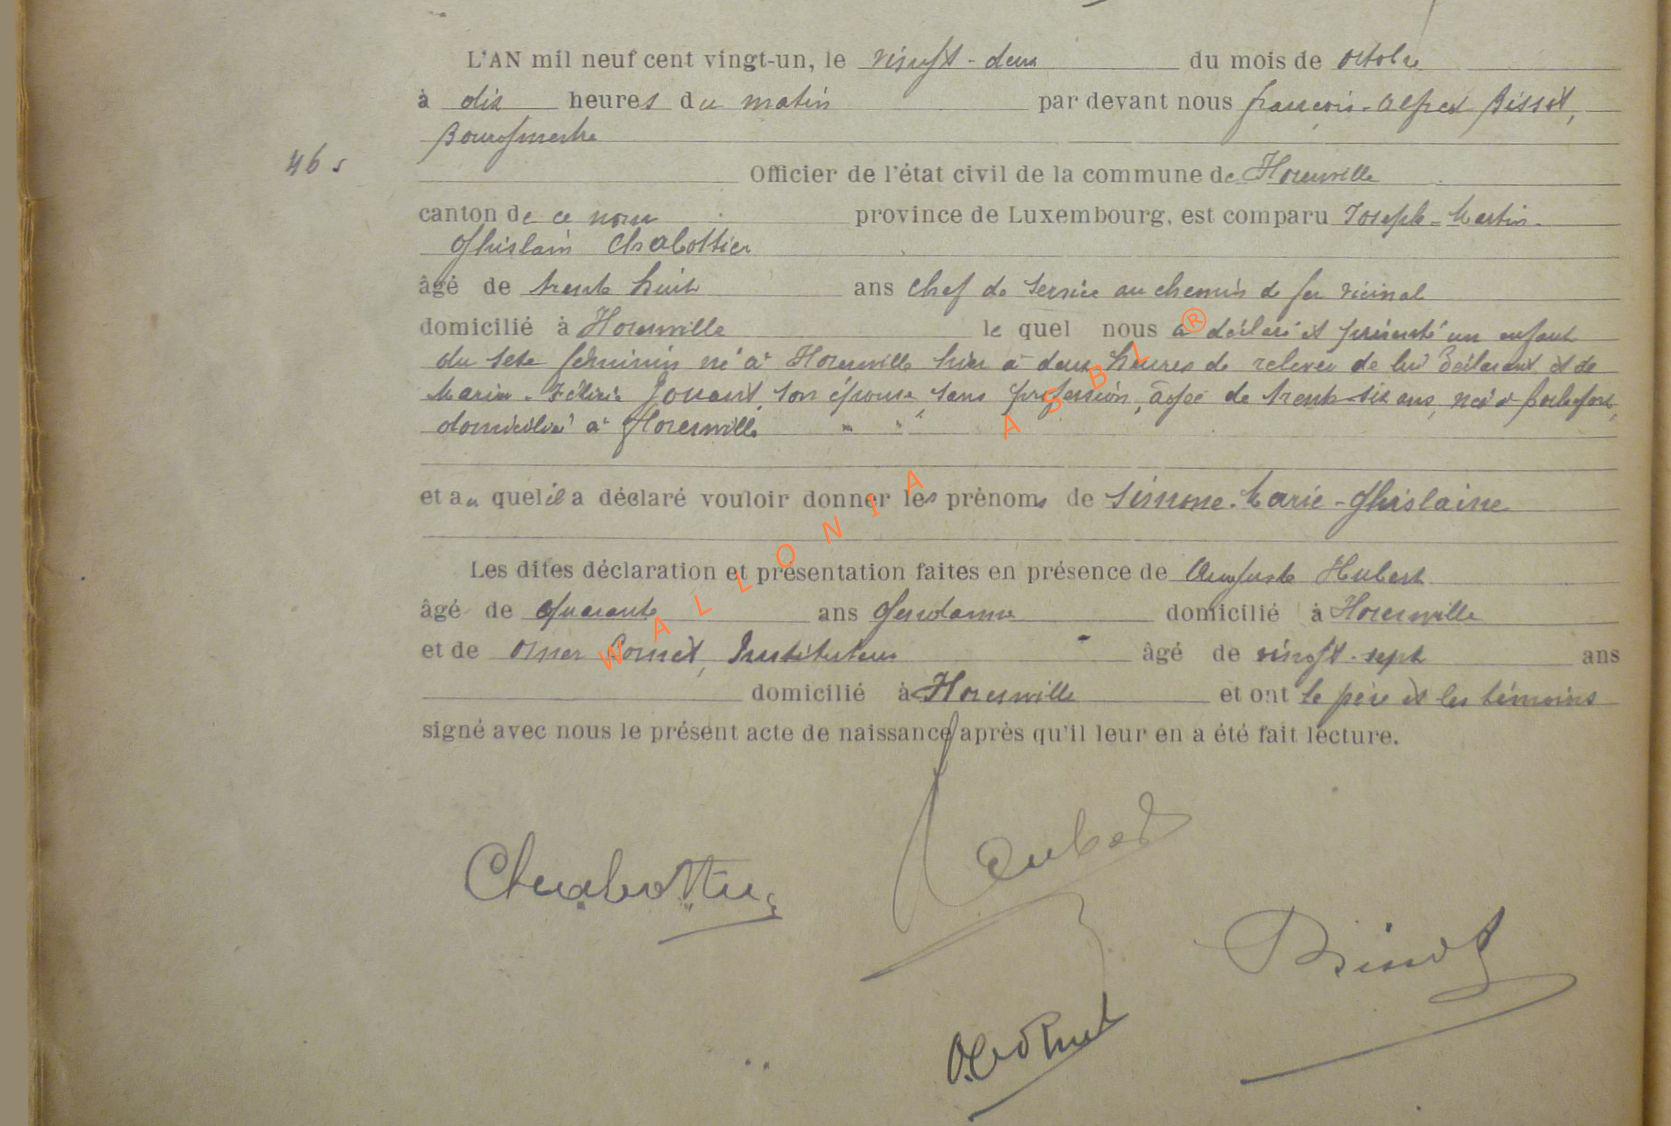 L'AN mil neuf cent vingt-un, le vingt-deux du mois de octobre
à dix heures du matin par devant nous françois-Alfred Bissot,
Bourgmestre
46 s Officier de l'état civil de la commune de Hotton
canton de ce nom province de Luxembourg, est comparu Joseph-Martin-
Ghislain Chabottier
âgé de trente huit ans chef de service au chemin de fer vicinal
domicilié à le quel nous a déclaré et présenté un enfant
du sexe féminin né à hier à deux heures de relevée de lui déclarant et de
Marie- Jouant, son épouse, sans profession, âgée de trente-six ans, née à Rochefort,
domiciliée à " "
et au quel il a déclaré vouloir donner les prénoms de Simone-Marie-Ghislaine
Les dites déclaration et présentation faites en présence de Auguste Hubert
âgé de quarante ans Gendarme domicilié à
et de Omer Cornet, Instituteur âgé de vingt-sept ans
domicilié à et ont le père et les témoins
signé avec nous le présent acte de naissance après qu'il leur en a été fait lecture.
Chabottier
Hubert
Bissot
O Cornet
WALLONIA ASBL ®